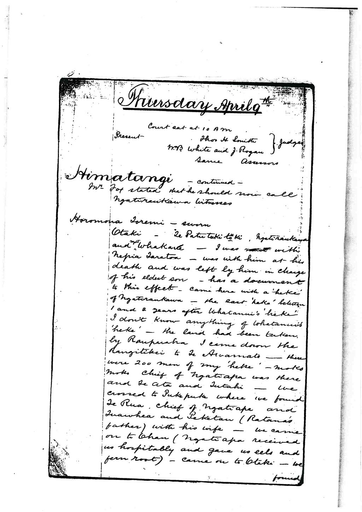 Thursday April 9th
Court sat at 10 AM
Present Thos H Smith
WB White and J Rogan } Judges
Same Assessors
Himatangi - continued -
Mr Fox stated that he should now call
Ngatiraukawa Witnesses
Horomona Toremi - sworn
Otaki - Te Ngatiraukawa
and Whakatu - I was with
Nepia Taratoa - was with him at his
death and was left by him in charge
of his eldest son - has a document
to this effect - came here with a 'heke'
of Ngatiraukawa - the last 'heke'
1 and 2 years after Whatanui's 'heke'
I don't know anything of Whatanui's
'heke' - the land had been taken
by Rauparaha I came down the
Rangitikei to Te Awamate - there
were 200 men of my 'heke' -
chief of Ngatiapa was there
and Te Ata and Tutaki - we
crossed to Pukepuke where we found
Te Rua, chief of Ngatiapa and
and (Ratana's
father) with his wife - we came
on to Ohau (Ngatiapa received
us hospitably and gave us eels and
fern root) - came on to Otaki - we
found